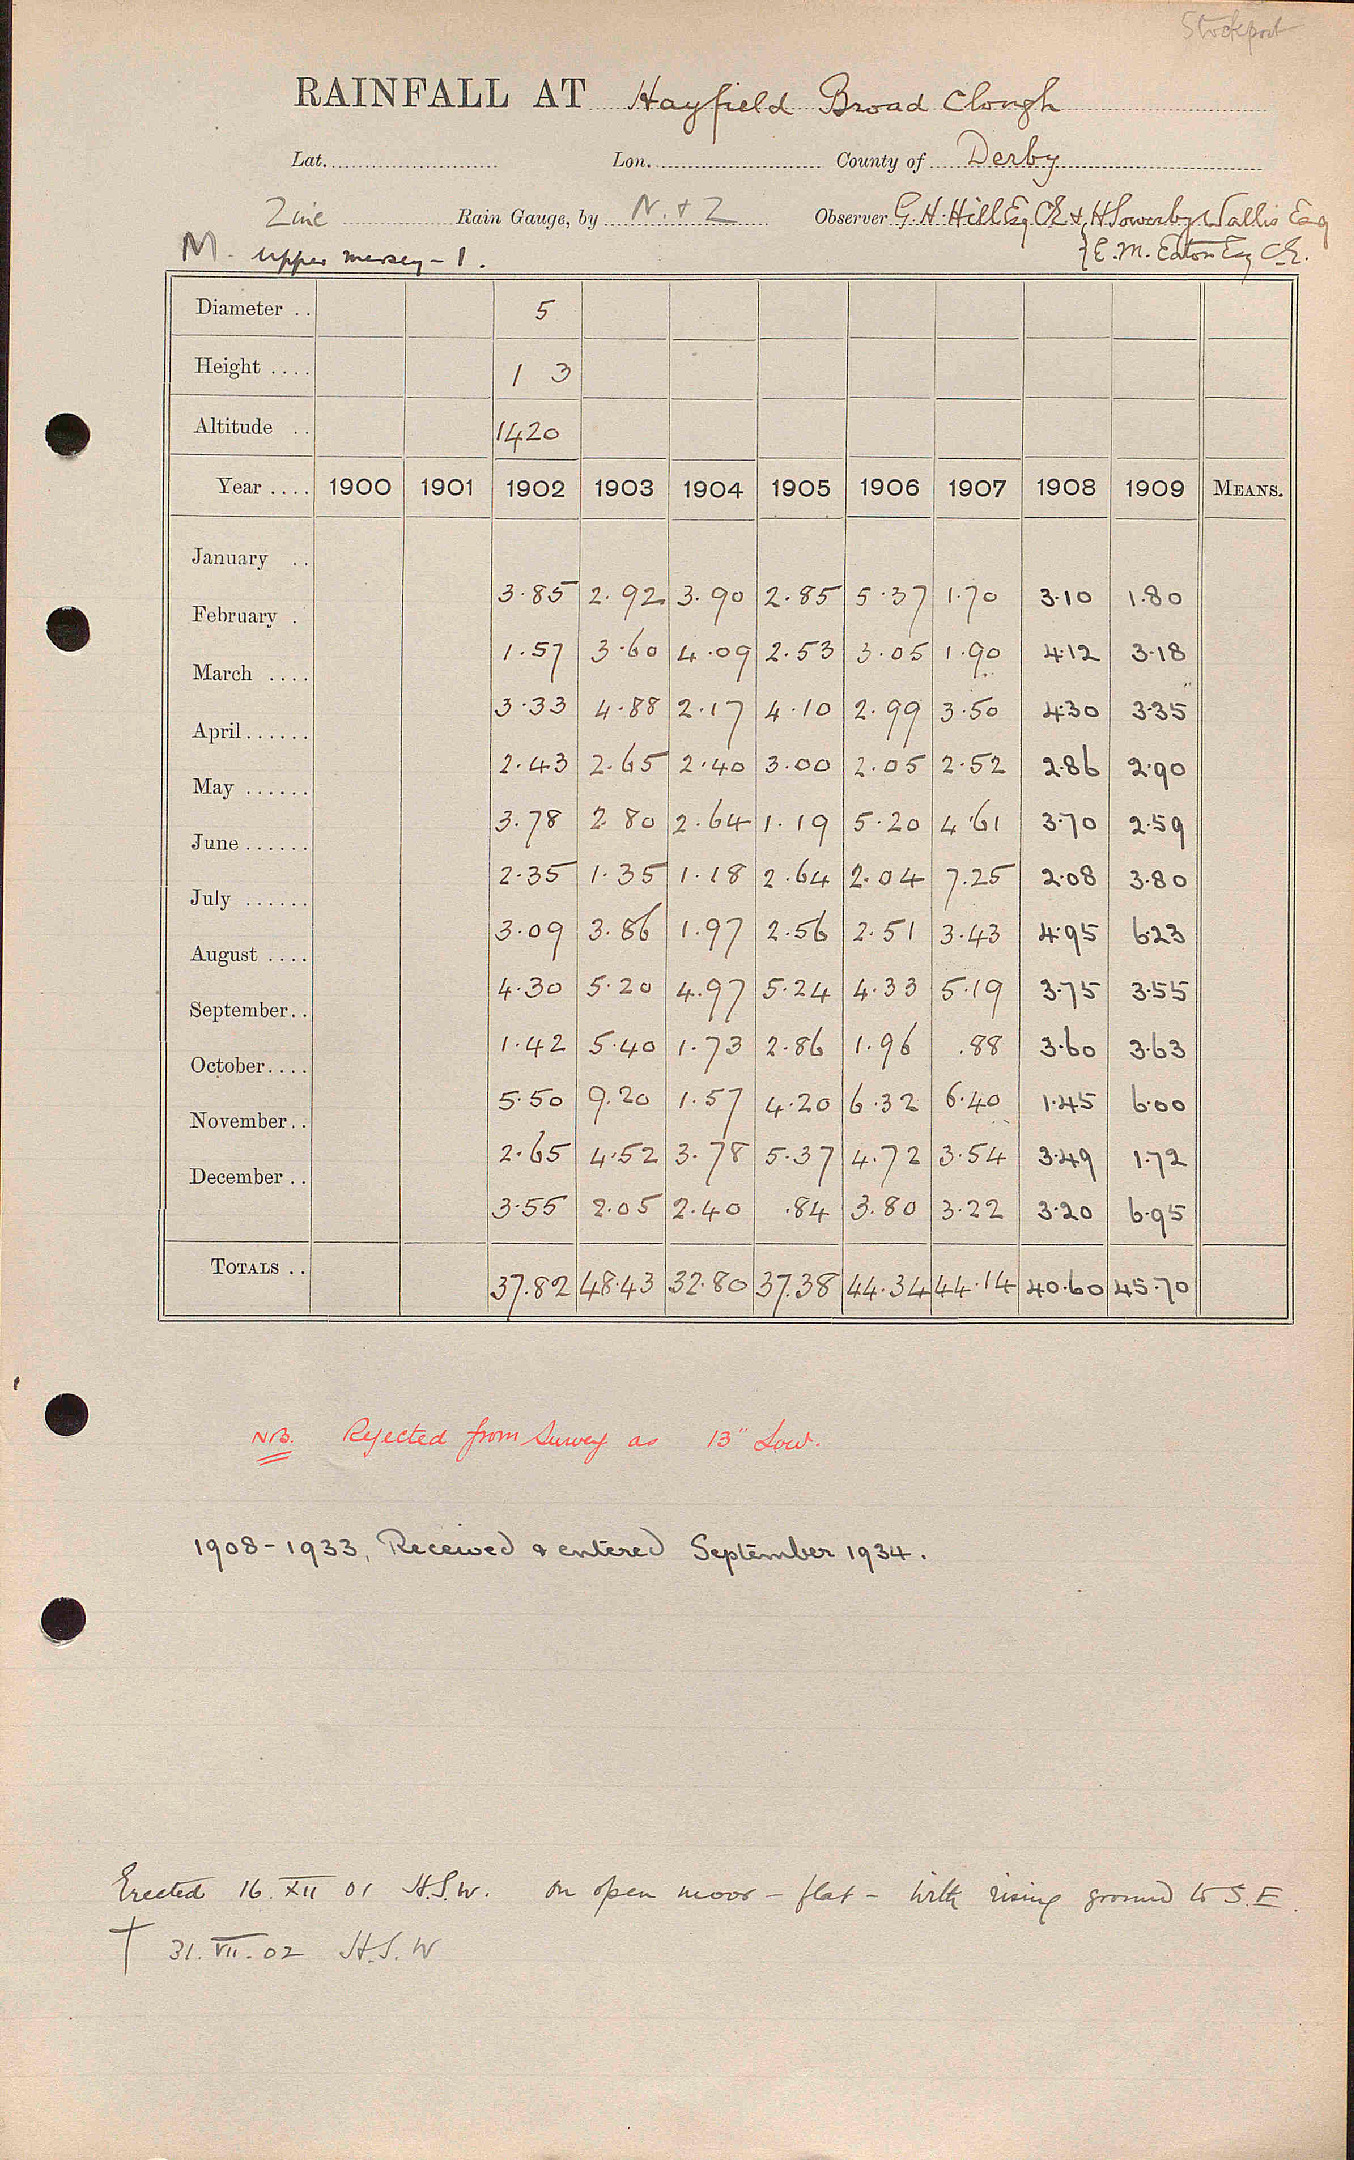 Stockport
RAINFALL AT Hayfield Broad Clough
Lat. Lon. County of Derby
Zinc Rain Gauge, by N. & Z Observer G. H. Hill Esq CE & H Sowerby Wallis Esq
M. Upper Mersey - 1. { E. M. Eaton Esq C.E.
Diameter .. 5
Height .... 1 3
Altitude .. 1420
Year .... 1900 1901 1902 1903 1904 1905 1906 1907 1908 1909 MEANS.
January .. 3.85 2.92 3.90 2.85 5.37 1.70 3.10 1.80
February . 1.57 3.60 4.09 2.53 3.05 1.90 4.12 3.18
March .... 3.33 4.88 2.17 4.10 2.99 3.50 4.30 3.35
April...... 2.43 2.65 2.40 3.00 2.05 2.52 2.86 2.90
May ...... 3.78 2 80 2.64 1.19 5.20 4.61 3.70 2.59
June ...... 2.35 1.35 1.18 2.64 2.04 7.25 2.08 3.80
July ...... 3.09 3.86 1.97 2.56 2.51 3.43 4.95 6.23
August .... 4.30 5.20 4.97 5.24 4.33 5.19 3.75 3.55
September.. 1.42 5.40 1.73 2.86 1.96 .88 3.60 3.63
October.... 5.50 9.20 1.57 4.20 6.32 6.40 1.45 6.00
November.. 2.65 4.52 3.78 5.37 4.72 3.54 3.49 1.72
December .. 3.55 2.05 2.40 .84 3.80 3.22 3.20 6.95
TOTALS .. 37.82 48.43 32.80 37.38 44.34 44.14 40.60 45.70
NB. Rejected from Survey as 13" Low.
1908-1933, Received & entered September 1934.
Erected 16. XII 01 H.S.W. On open moor - flat - with rising ground to S.E.
† 31. VII. 02 H.S.W